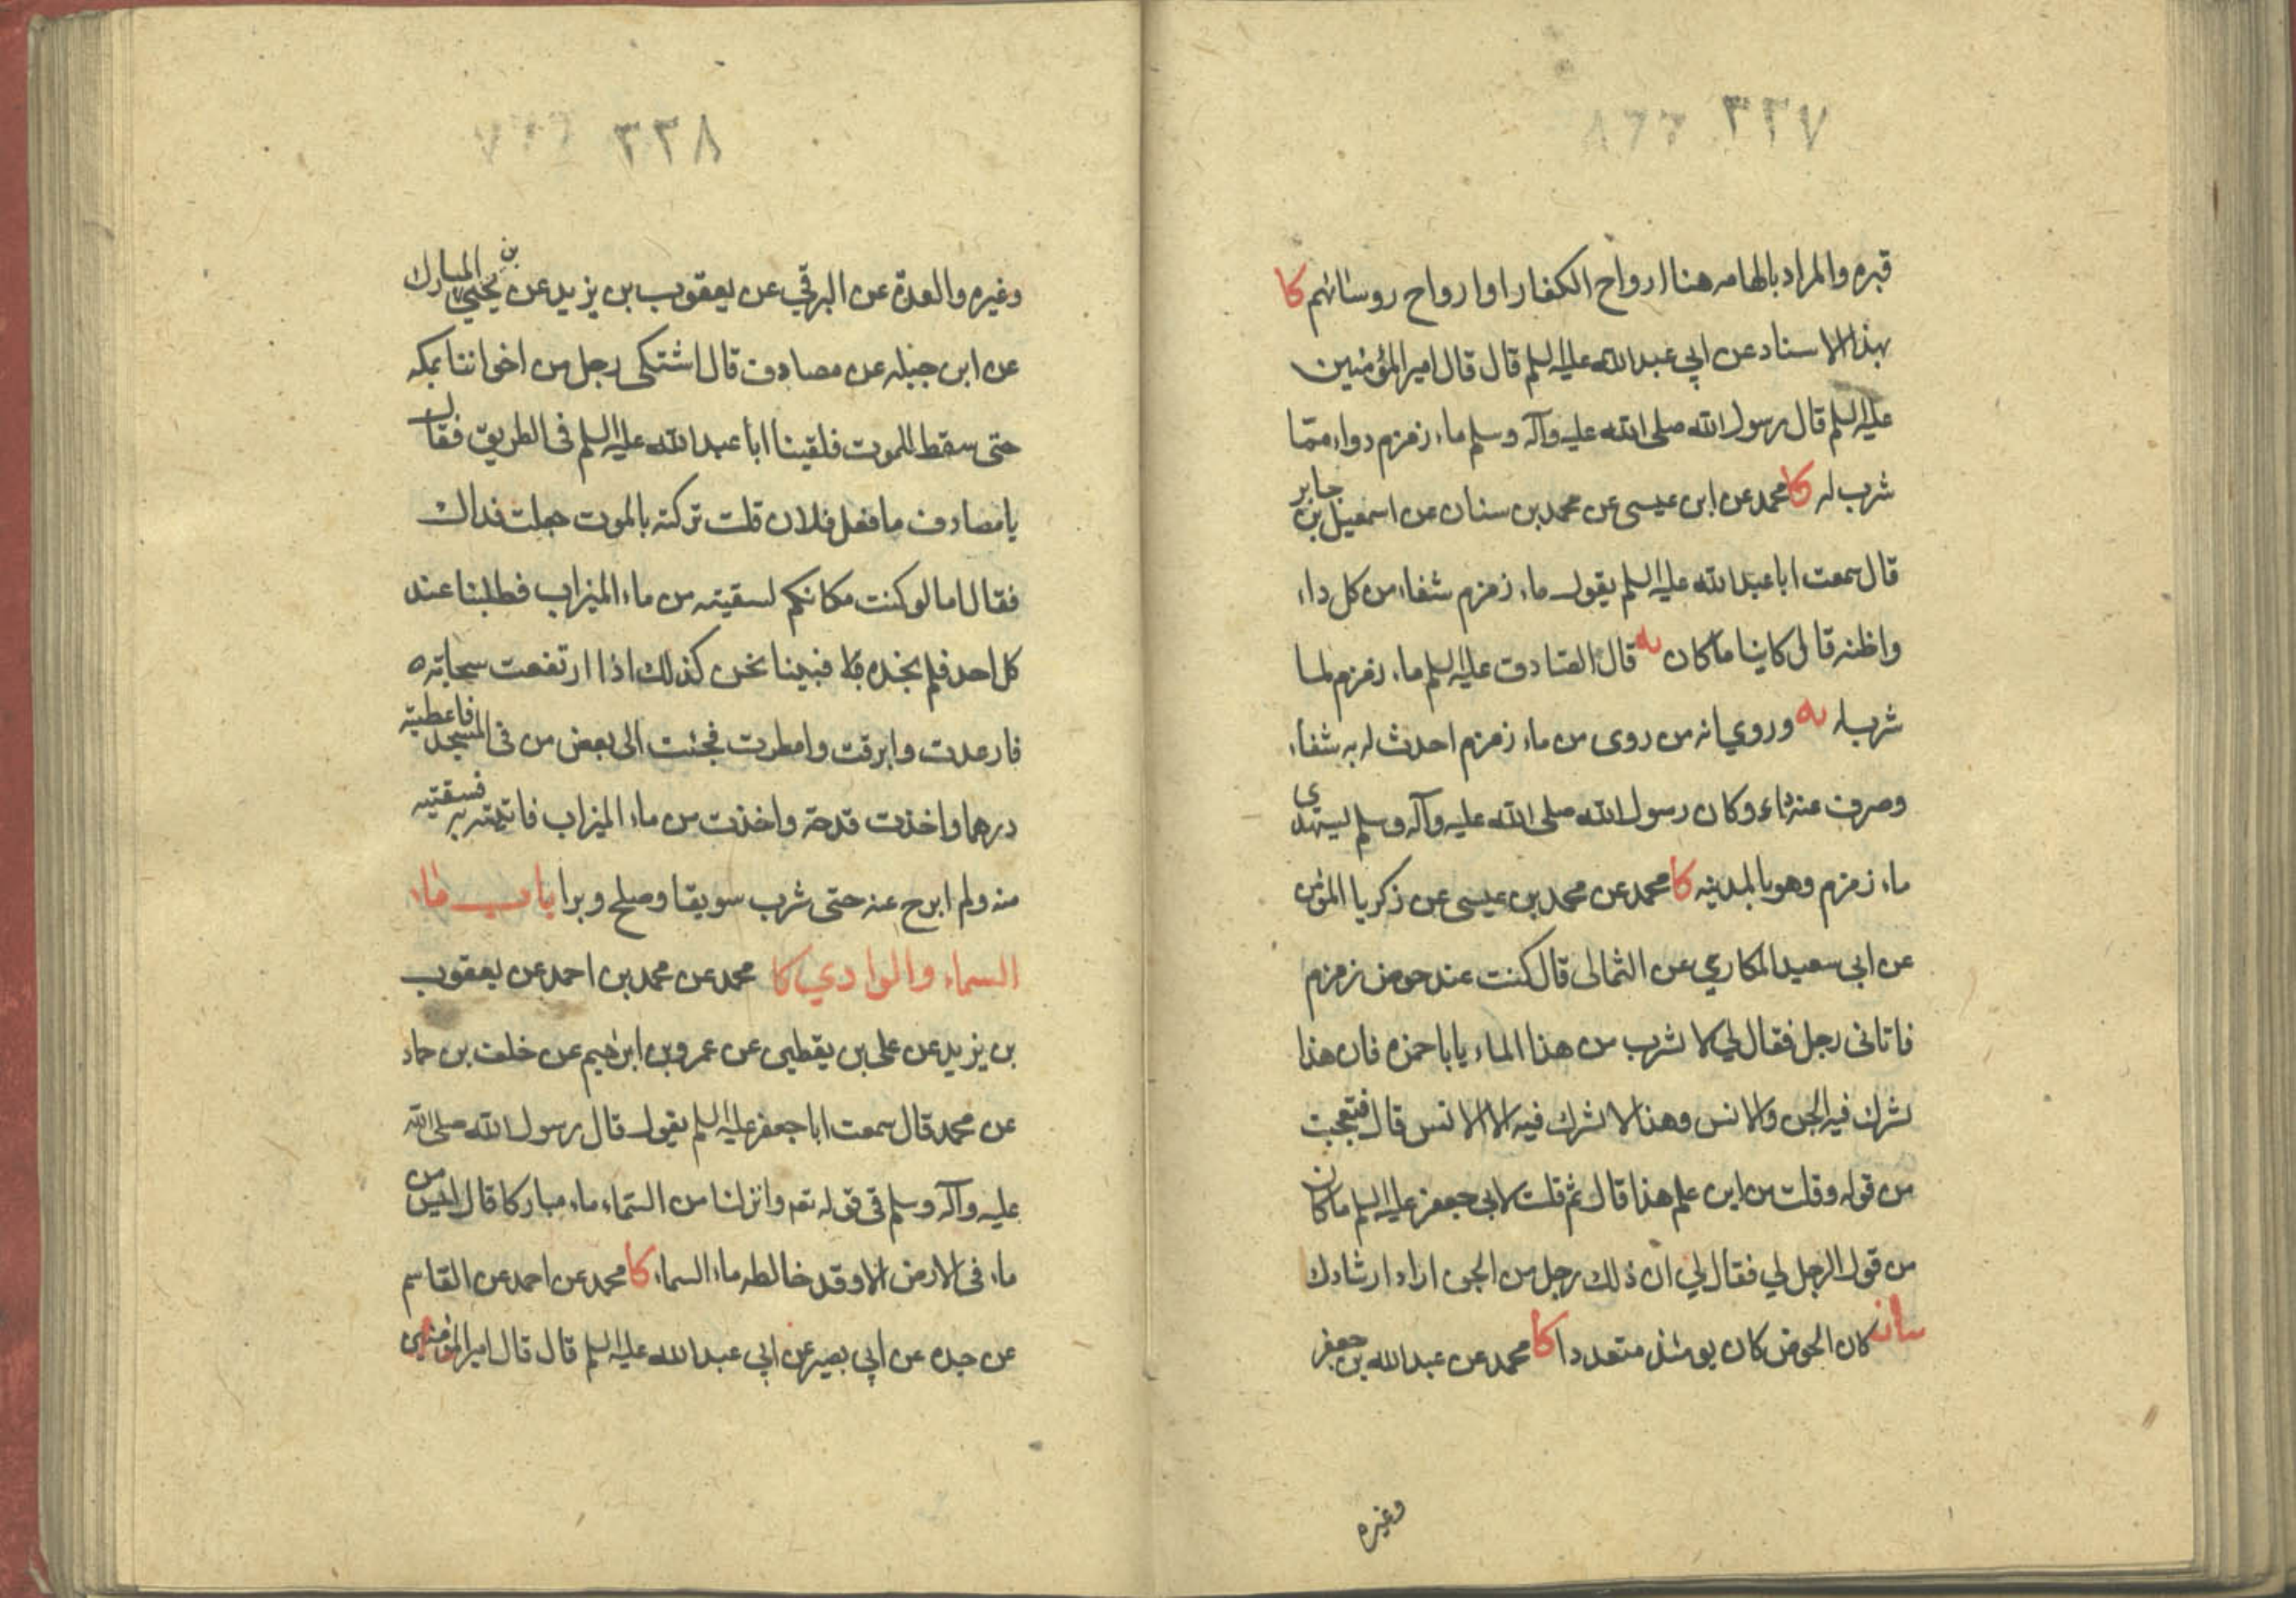 ٣٢٧
قبره والمراد بالهامه هنا ارواح الكفار او ارواح روسائهم كا
بهذا الاسناد عن ابي عبد الله عليه السلم قال قال امير المؤمنين
عليه السلم قال رسول الله صلى الله عليه وآله وسلم ماء زمزم دواء ممّا
شرب له كا محمد عن ابن عيسى عن محمد بن سنان عن اسمعيل بن جابر
قال سمعت ابا عبد الله عليه السلم يقول ماء زمزم شفاء من كل داء
واظنه قال كاينا ما كان يه قال الصّادق عليه السلم ماء زمزم لما
شرب له يه وروي انه من روى من ماء زمزم احدث له به شفاء
وصرف عنه داء وكان رسول الله صلى الله عليه وآله وسلم يستهدي
ماء زمزم وهو بالمدينه كا محمد عن محمد بن عيسى عن زكريا المؤمن
عن ابي سعيد المكاري عن الثمالى قال كنت عند حوض زمزم
فاتانى رجل فقال لي لا تشرب من هذا الماء يا با حمزه فان هذا
تشرك فيه الجن والانس وهذا لا تشرك فيه الا الانس قال فتعجبت
من قوله وقلت من اين علم هذا قال ثم قلت لابي جعفر عليه السلم ما كان
من قول الرجل لي فقال لي ان ذلك رجل من الجن اراد ارشادك
بيان كان الحوض كان يومئذ متعددا كا محمد عن عبد الله بن جعفر
وغيره
٣٢٨
وغيره والعدة عن البرقي عن يعقوب بن يزيد عن يحيى بن المبارك
عن ابن جبله عن مصادف قال اشتكى رجل من اخواننا بمكه
حتى سقط للموت فلقينا ابا عبد الله عليه السلم فى الطريق فقال
يا مصادف ما فعل فلان قلت تركته بالموت جعلت فداك
فقال اما لو كنت مكانكم لسقيته من ماء الميزاب فطلبنا عند
كل احد فلم نجده فبينا نحن كذلك اذا ارتفعت سحابته
فارعدت وابرقت وامطرت فجئت الى بعض من فى المسجد فاعطيته
درهما واخذت قدحة واخذت من ماء الميزاب فاتيته به فسقيته
منه ولم ابرح عنه حتى شرب سويقا وصلح وبرا باب ماء
السماء والوادي كا محمد عن محمد بن احمد عن يعقوب
بن يزيد عن على بن يقطين عن عمرو بن ابرهيم عن خلف بن حماد
عن محمد قال سمعت ابا جعفر عليه السلم يقول قال رسول الله صلى الله
عليه وآله وسلم فى قوله تع وانزلنا من السّماء ماء مباركا قال ليس من
ماء فى الارض الا وقد خالطه ماء السماء كا محمد عن احمد عن القاسم
عن جده عن ابي بصير عن ابي عبد الله عليه السلم قال قال امير المؤمنين